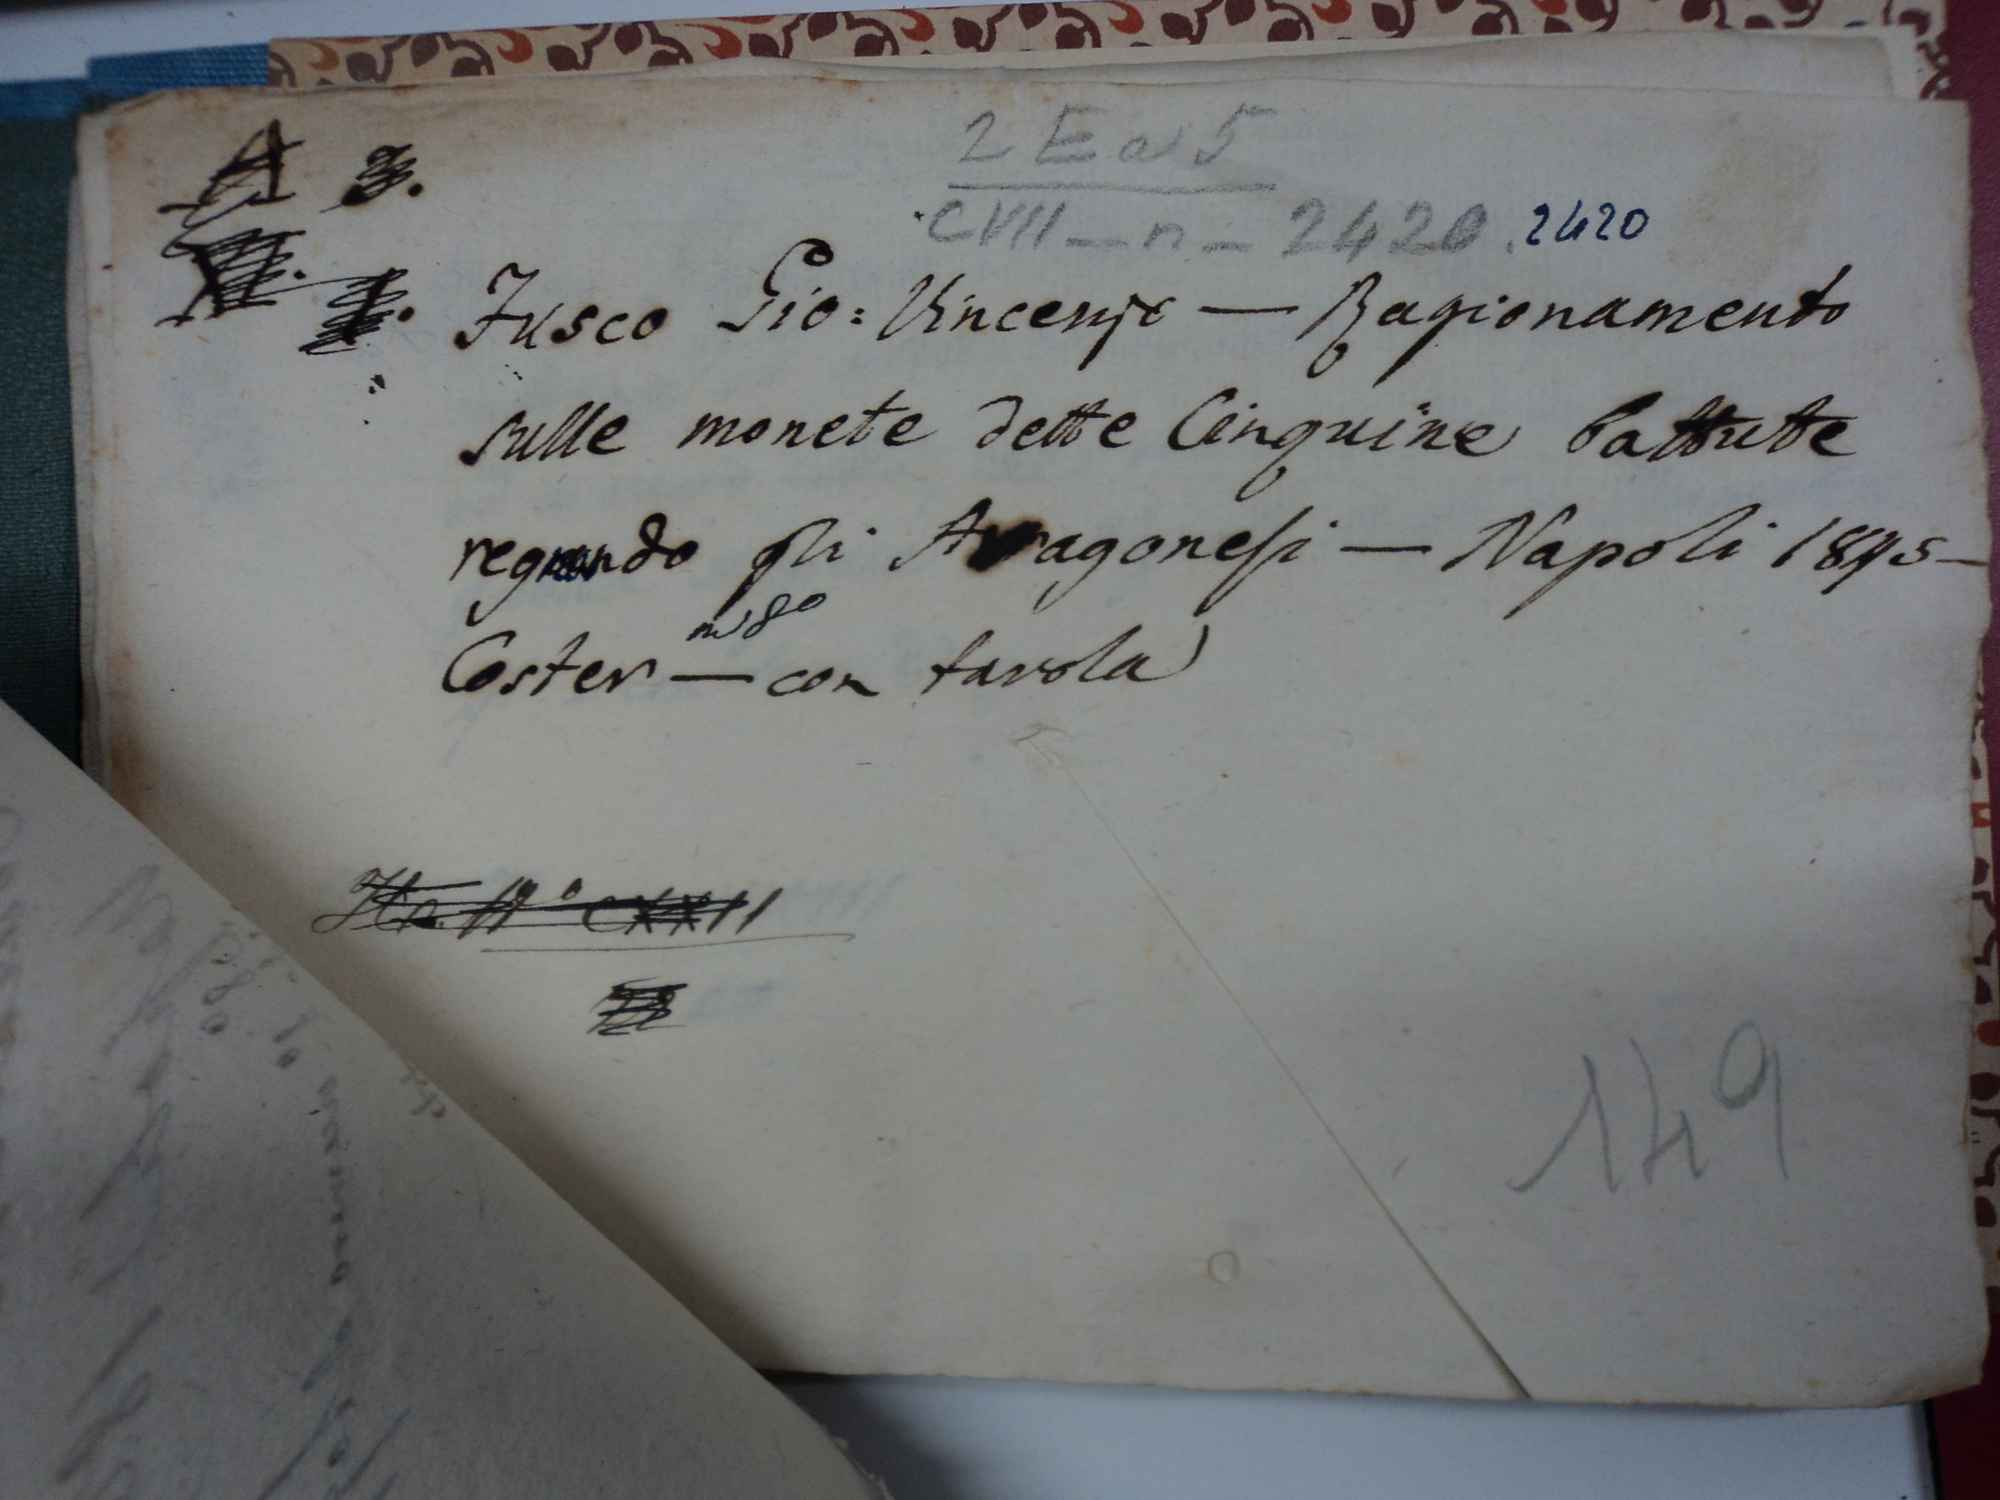 2 E a 5
CVII - n - 2420. 2420
3.
Fusco Gio: Vincenzo — Ragionamento
sulle monete dette Cinquine battute
regnando gli Aragonesi — Napoli 1845 —
in 8º
Coster — con tavola
Nº CXXII
149